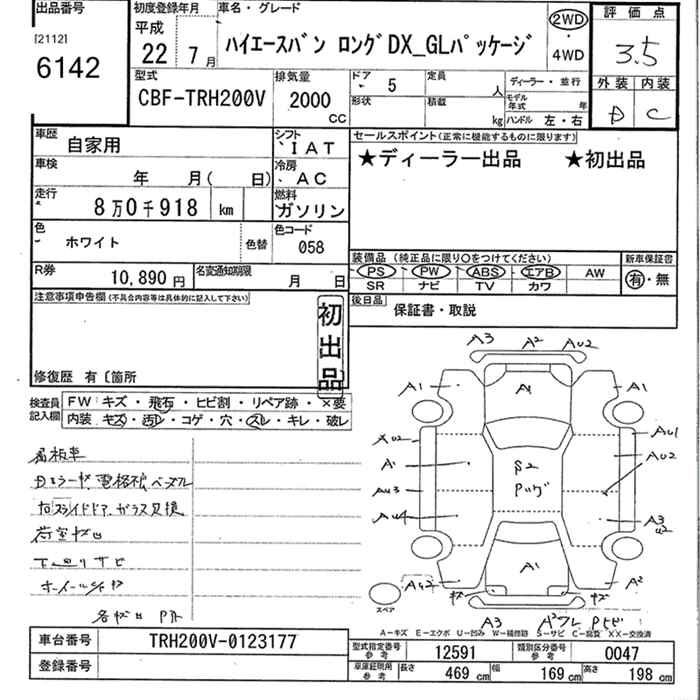 出品番号
[2112]
6142
初度登録年月
平成
22 7月
車名・グレード
ハイエースバン ロングDX_GLパッケージ
2WD
・
4WD
評価点
3.5
外装 内装
D C
型式
CBF-TRH200V
排気量
2000
CC
ドア 5
定員 人
形状
積載 kg
ディーラー・並行
モデル年式 年
ハンドル 左・右
車歴
自家用
シフト
IAT
車検
年 月( 日)
冷房
AC
走行
8万0千918 km
燃料
ガソリン
色
ホワイト
色替
色コード
058
R券
10,890円
名変通知期限
月 日
セールスポイント(正常に機能するものに限ります)
★ディーラー出品 ★初出品
装備品(純正品に限り○をつけてください)
新車保証書
PS PW ABS エアB AW
SR ナビ TV カワ
有・無
後日品
保証書・取説
注意事項申告欄(不具合内容等は具体的に記入して下さい)
初出品
修復歴 有〔箇所
検査員記入欄
FW キズ・飛石・ヒビ割・リペア跡・×要
内装 キズ・汚レ・コゲ・穴・スレ・キレ・破レ
A3 A2 AU2
A1 A1 A1
AU1
AU2
A1
AU3
AU4
A3
U2
A1
A2
キズ キズ
スペア
A3
A-キズ E-エクボ U-凹み W-補修跡 S-サビ C-腐食 XX-交換済
車台番号
TRH200V-0123177
登録番号
型式指定番号
参考
12591
類別区分番号
参考
0047
車庫証明用
参考
長さ 469cm 幅 169cm 高さ 198cm